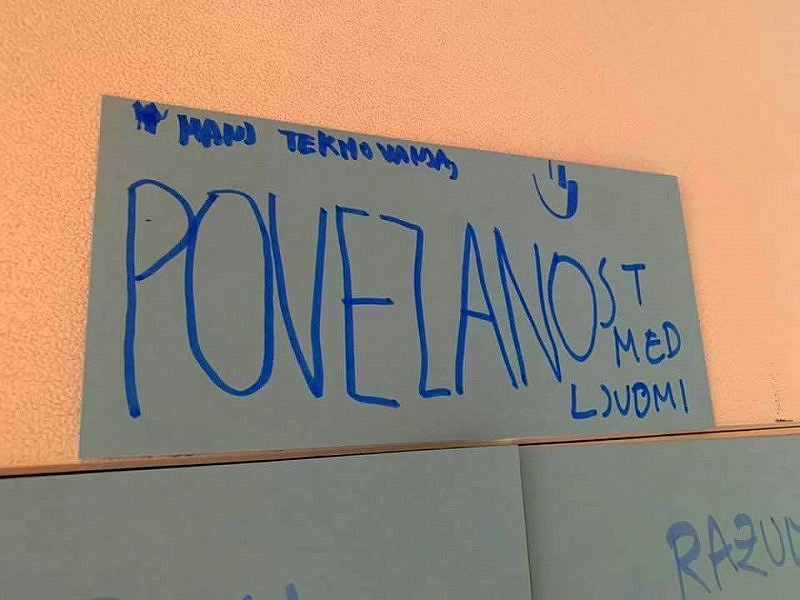 MANJ TEKMOVANJA,
POVEZANOST
MED
LJUDMI